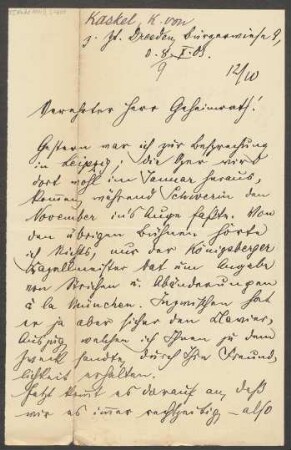 Kaskel, K. von
z. Zt. Dresden, Bürgerwiese 9,
d. 8. X. 03.
9
12/10
Verehrter Herr Geheimrath!
Gestern war ich zur Besprechung
in Leipzig; die Oper wird
dort wohl im Januar heraus,
kommen, während Schwerin den
November in's Auge faßte. Von
den übrigen Bühnen hörte
ich Nichts, nur der Königsberger
Kapellmeister bat um Angabe
von Strichen u. Abänderungen
à la München. Inzwischen hat
er ja aber sicher den Clavier,
Auszug, welchen ich Ihnen zu dem
Zweck sandte, durch Ihre Freund,
lichkeit erhalten.
Jetzt kommt es darauf an, daß
wir es immer rechtzeitig – also